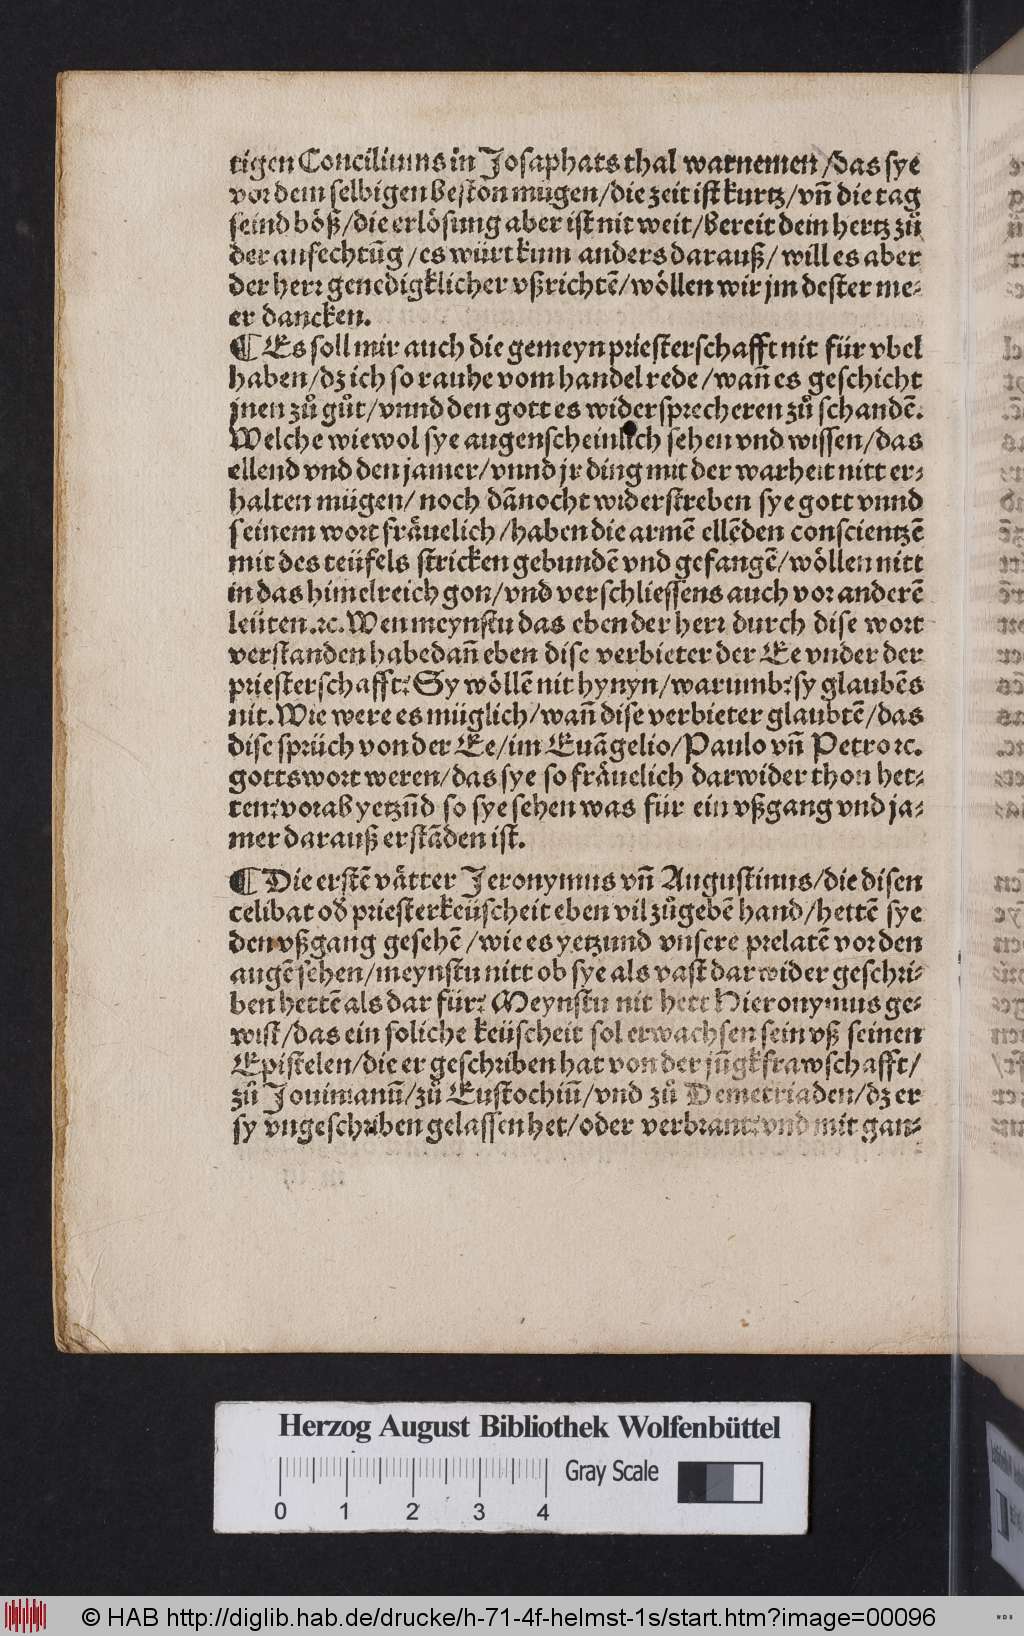 tigen Conciliums in Josaphats thal warnemen / das sye
vor dem selbigen beston mügen / die zeit ist kurtz / vñ die tag
seind böß / die erlösung aber ist nit weit / bereit dein hertz zů
der anfechtũg / es würt kum anders darauß / will es aber
der herr genedigklicher vßrichtẽ / wöllen wir jm dester me⸗
er dancken.
¶ Es soll mir auch die gemeyn priesterschafft nit für vbel
haben / dz ich so rauhe vom handel rede / wañ es geschicht
jnen zů gůt / vnnd den gott es widersprecheren zů schandẽ.
Welche wiewol sye augenscheinlich sehen vnd wissen / das
ellend vnd den jamer / vnnd jr ding mit der warheit nitt er⸗
halten mügen / noch dãnocht widerstreben sye gott vnnd
seinem wort fräuelich / haben die armẽ ellẽden conscientzẽ
mit des teüfels stricken gebundẽ vnd gefangẽ / wöllen nitt
in das himelreich gon / vnd verschliessens auch vor anderẽ
leüten ꝛc. Wen meynstu das eben der herr durch dise wort
verstanden habe dañ eben dise verbieter der Ee vnder der
priesterschafft? Sy wöllẽ nit hynyn / warumb? sy glaubẽs
nit. Wie were es müglich / wañ dise verbieter glaubtẽ / das
dise sprüch von der Ee / im Euãgelio / Paulo vñ Petro ꝛc.
gotts wort weren / das sye so fräuelich darwider thon het⸗
ten? vorab yetzũd so sye sehen was für ein vßgang vnd ja⸗
mer darauß erstãden ist.
¶ Die erstẽ vätter Jeronymus vñ Augustinus / die disen
celibat od priesterkeüscheit eben vil zůgebẽ hand / hettẽ sye
den vßgang gesehẽ / wie es yetzund vnsere prelatẽ vor den
augẽ sehen / meynstu nitt ob sye als vast darwider geschri⸗
ben hettẽ als dar für? Meynstu nit hett Hieronymus ge⸗
wist / das ein soliche keüscheit sol erwachsen sein vß seinen
Epistelen / die er geschriben hat von der jũgkfrawschafft /
zů Jouinianũ / zů Eustochiũ / vnd zů Demetriaden / dz er
sy vngeschriben gelassen het / oder verbrant? vnd mit gan⸗
Herzog August Bibliothek Wolfenbüttel
Gray Scale
0 1 2 3 4
© HAB http://diglib.hab.de/drucke/h-71-4f-helmst-1s/start.htm?image=00096